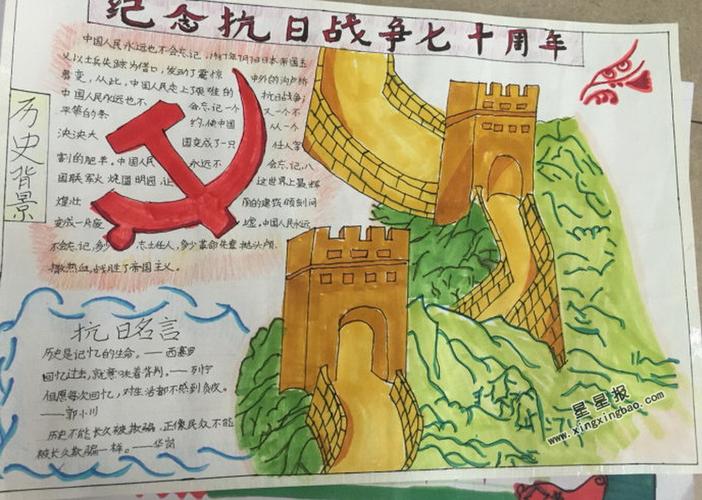 纪念抗日战争七十周年
历史背景
中国人民永远也不会忘记,1937年7月7日日本帝国主
义以士兵失踪为借口,发动了震惊中外的沟卢桥
事变,从此,中国人民走上了艰难的抗日战争;
中国人民永远也不会忘记一个又一个不
平等的条约,使中国从一个
泱泱大国变成了一只任人宰
割的肥羊,中国人民永远不会忘记,八
国联军火烧圆明园,让这世界上最辉
煌壮丽的建筑顷刻间
变成一片废墟,中国人民永远
不会忘记,多少志士仁人,多少革命先辈抛头颅、
撒热血,战胜了帝国主义。
抗日名言
历史是记忆的生命。——西塞罗
回忆过去,就意味着背判。——列宁
但愿每次回忆,对生活都不感到负疚。
——郭小川
历史不能长久被欺骗,正像民众不能
被长久欺骗一样。——华岗
星星报
www.xingxingbao.com